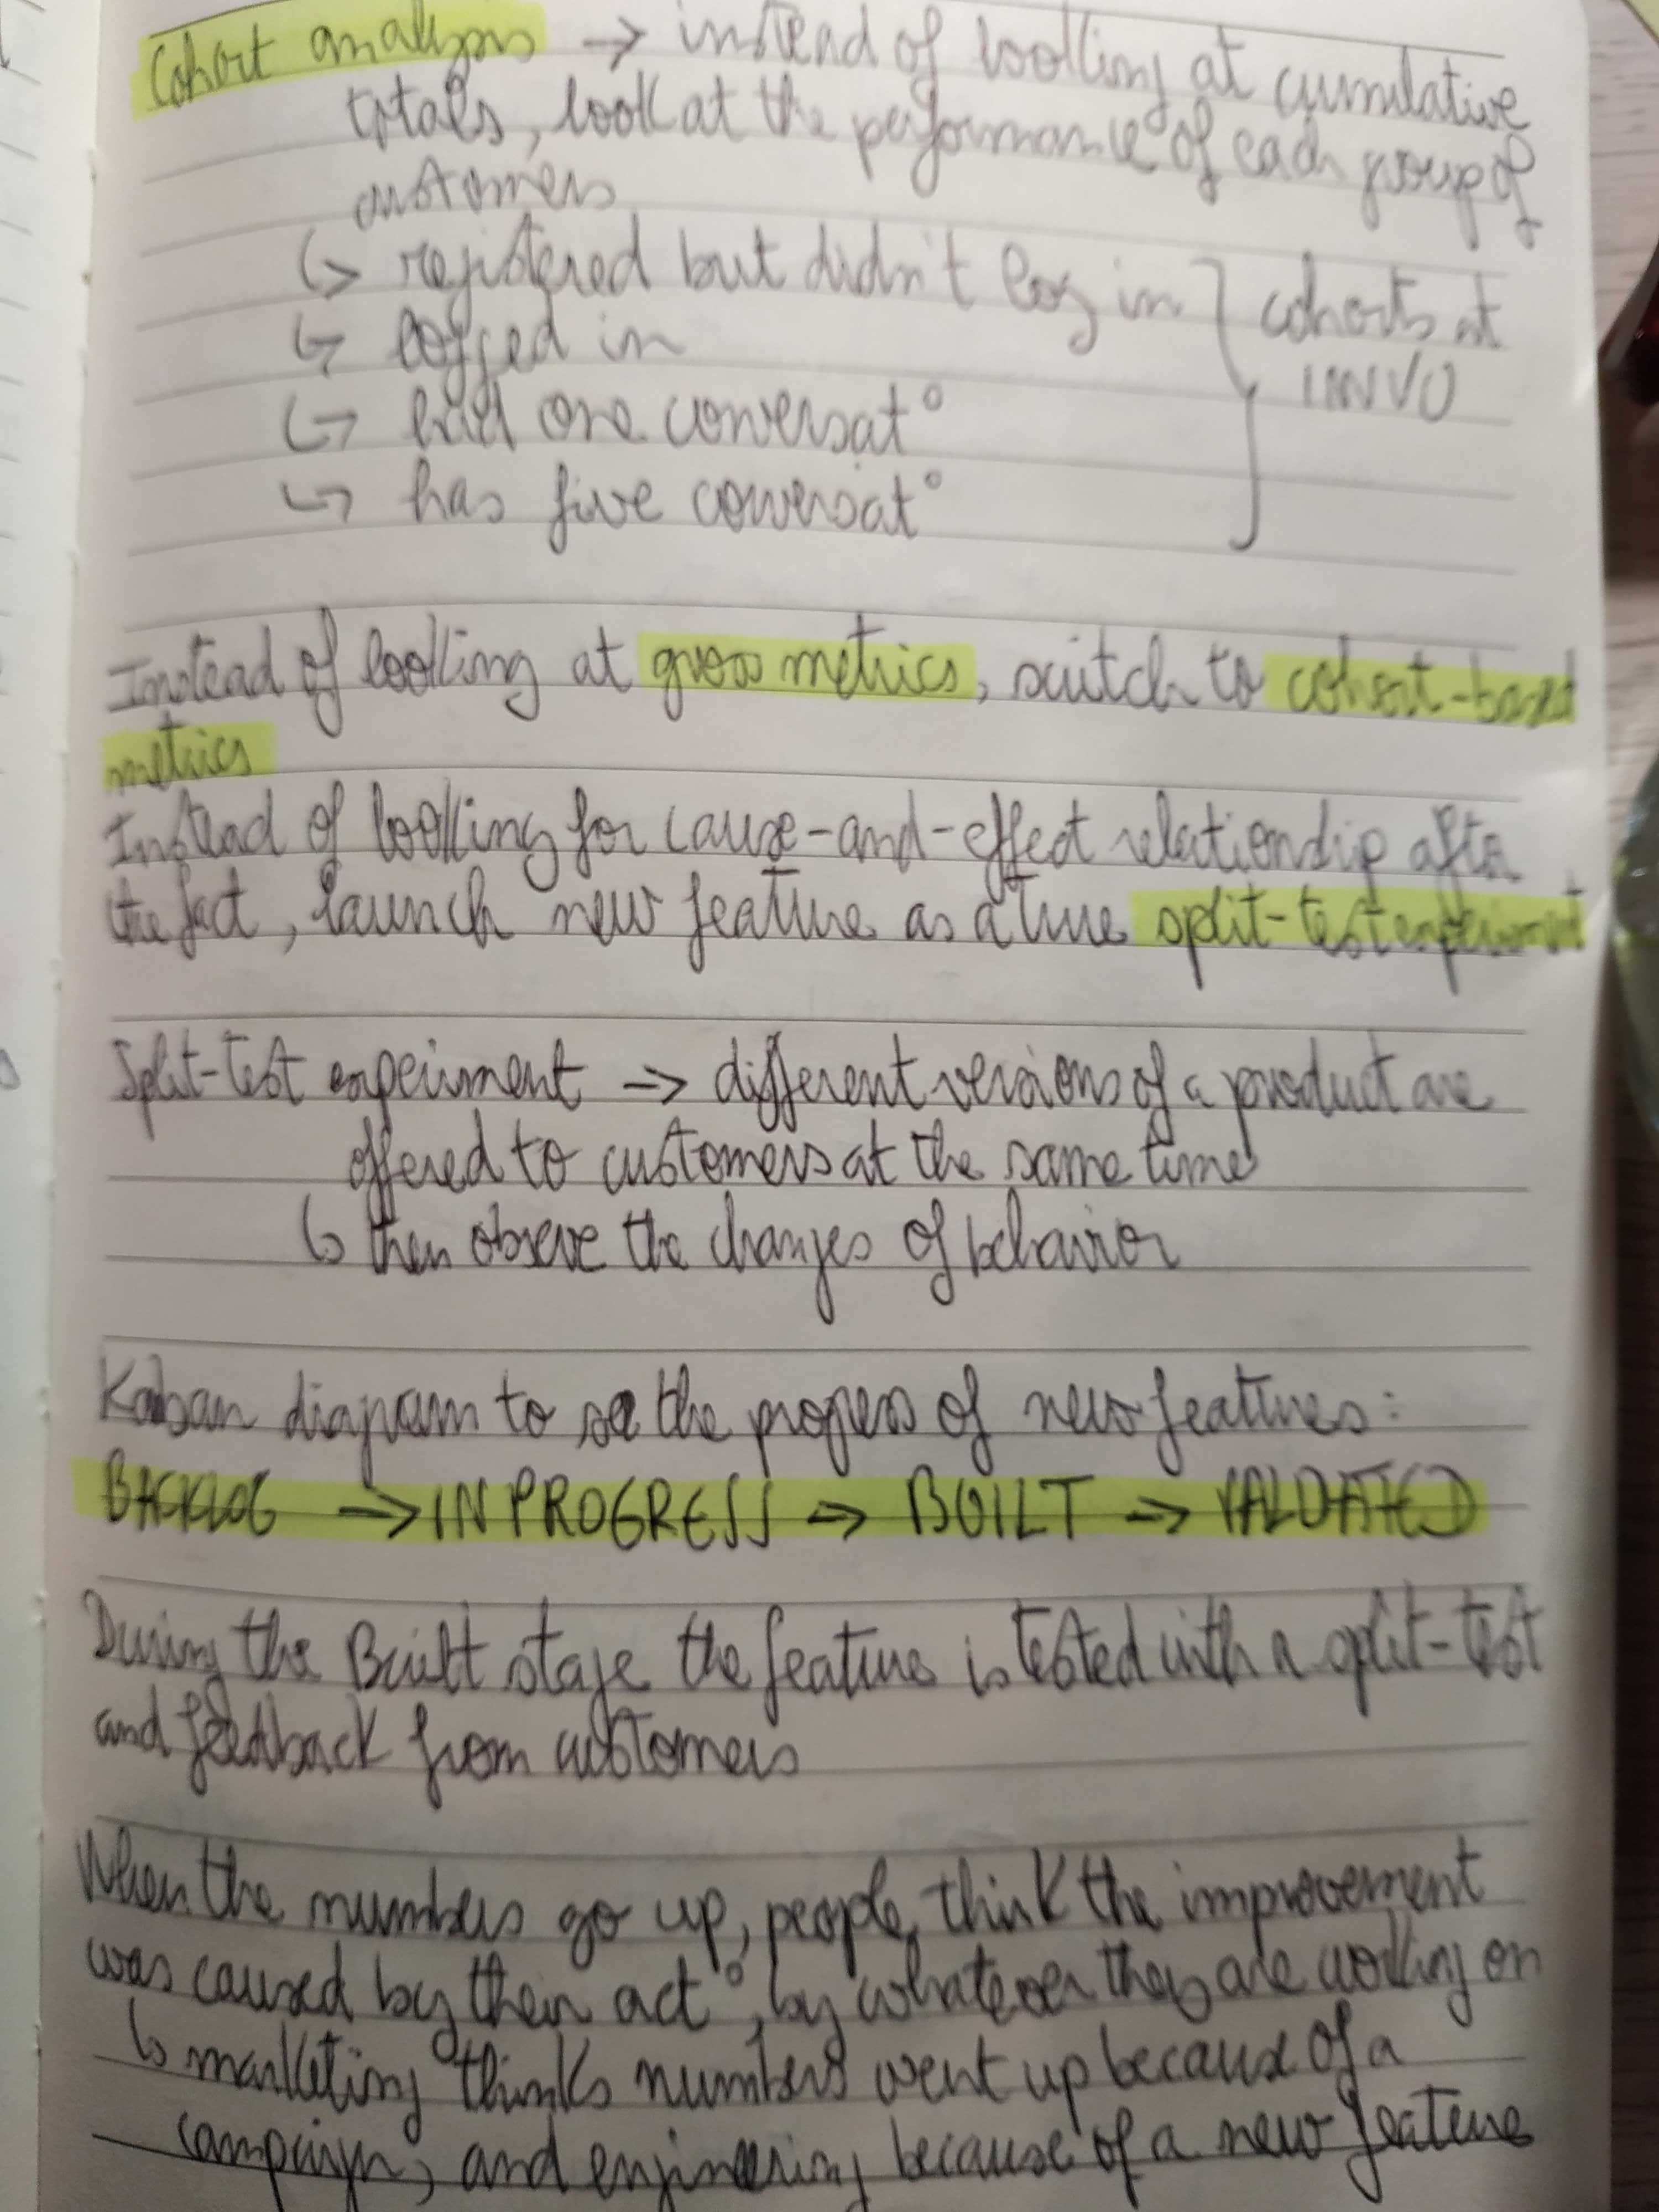 Cohort analysis -> instead of looking at cumulative
totals, look at the performance of each group of
customers
↳ registered but didn't log in
↳ logged in
↳ had one conversat°
↳ has five conversat°
cohorts at
IMVU
Instead of looking at gross metrics, switch to cohort-based
metrics
Instead of looking for cause-and-effect relationship after
the fact, launch new feature as a true split-test experiment
Split-test experiment -> different versions of a product are
offered to customers at the same time
↳ then observe the changes of behavior
Kaban diagram to see the progess of new features:
BACKLOG -> IN PROGRESS -> BUILT -> VALIDATED
During the Built stage the feature is tested with a split-test
and feedback from customers
When the numbers go up, people think the improvement
was caused by their act°, by whatever they are working on
↳ marketing thinks numbers went up because of a
campaign, and engineering because of a new feature